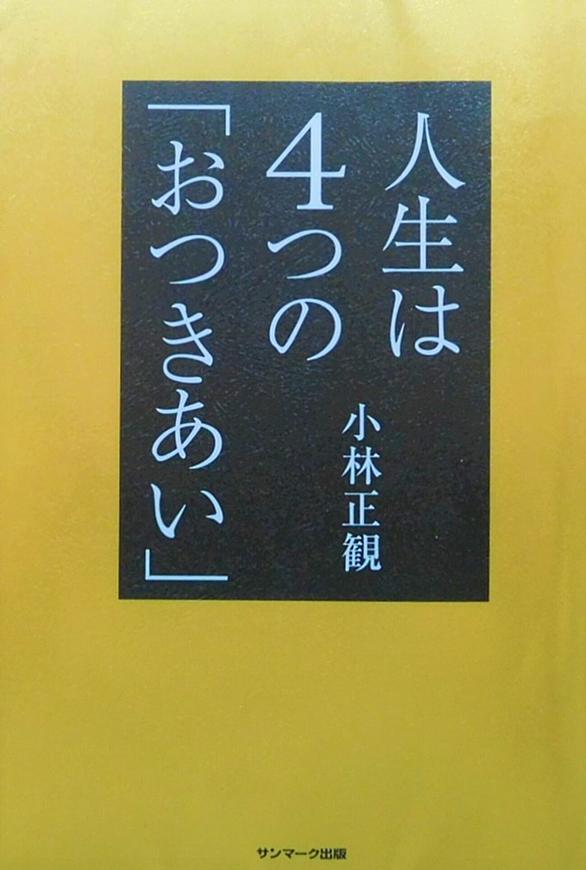 人生は
4つの
「おつきあい」
小林正観
サンマーク出版